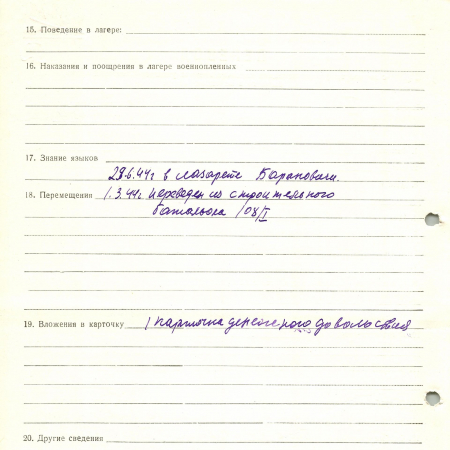 15. Поведение в лагере:
16. Наказания и поощрения в лагере военнопленных
17. Знание языков
29.6.44г в лазарете Барановичи.
18. Перемещения 1.3.44г. переведен из строительного
батальона 108/I
19. Вложения в карточку 1 карточка денежного довольствия
20. Другие сведения